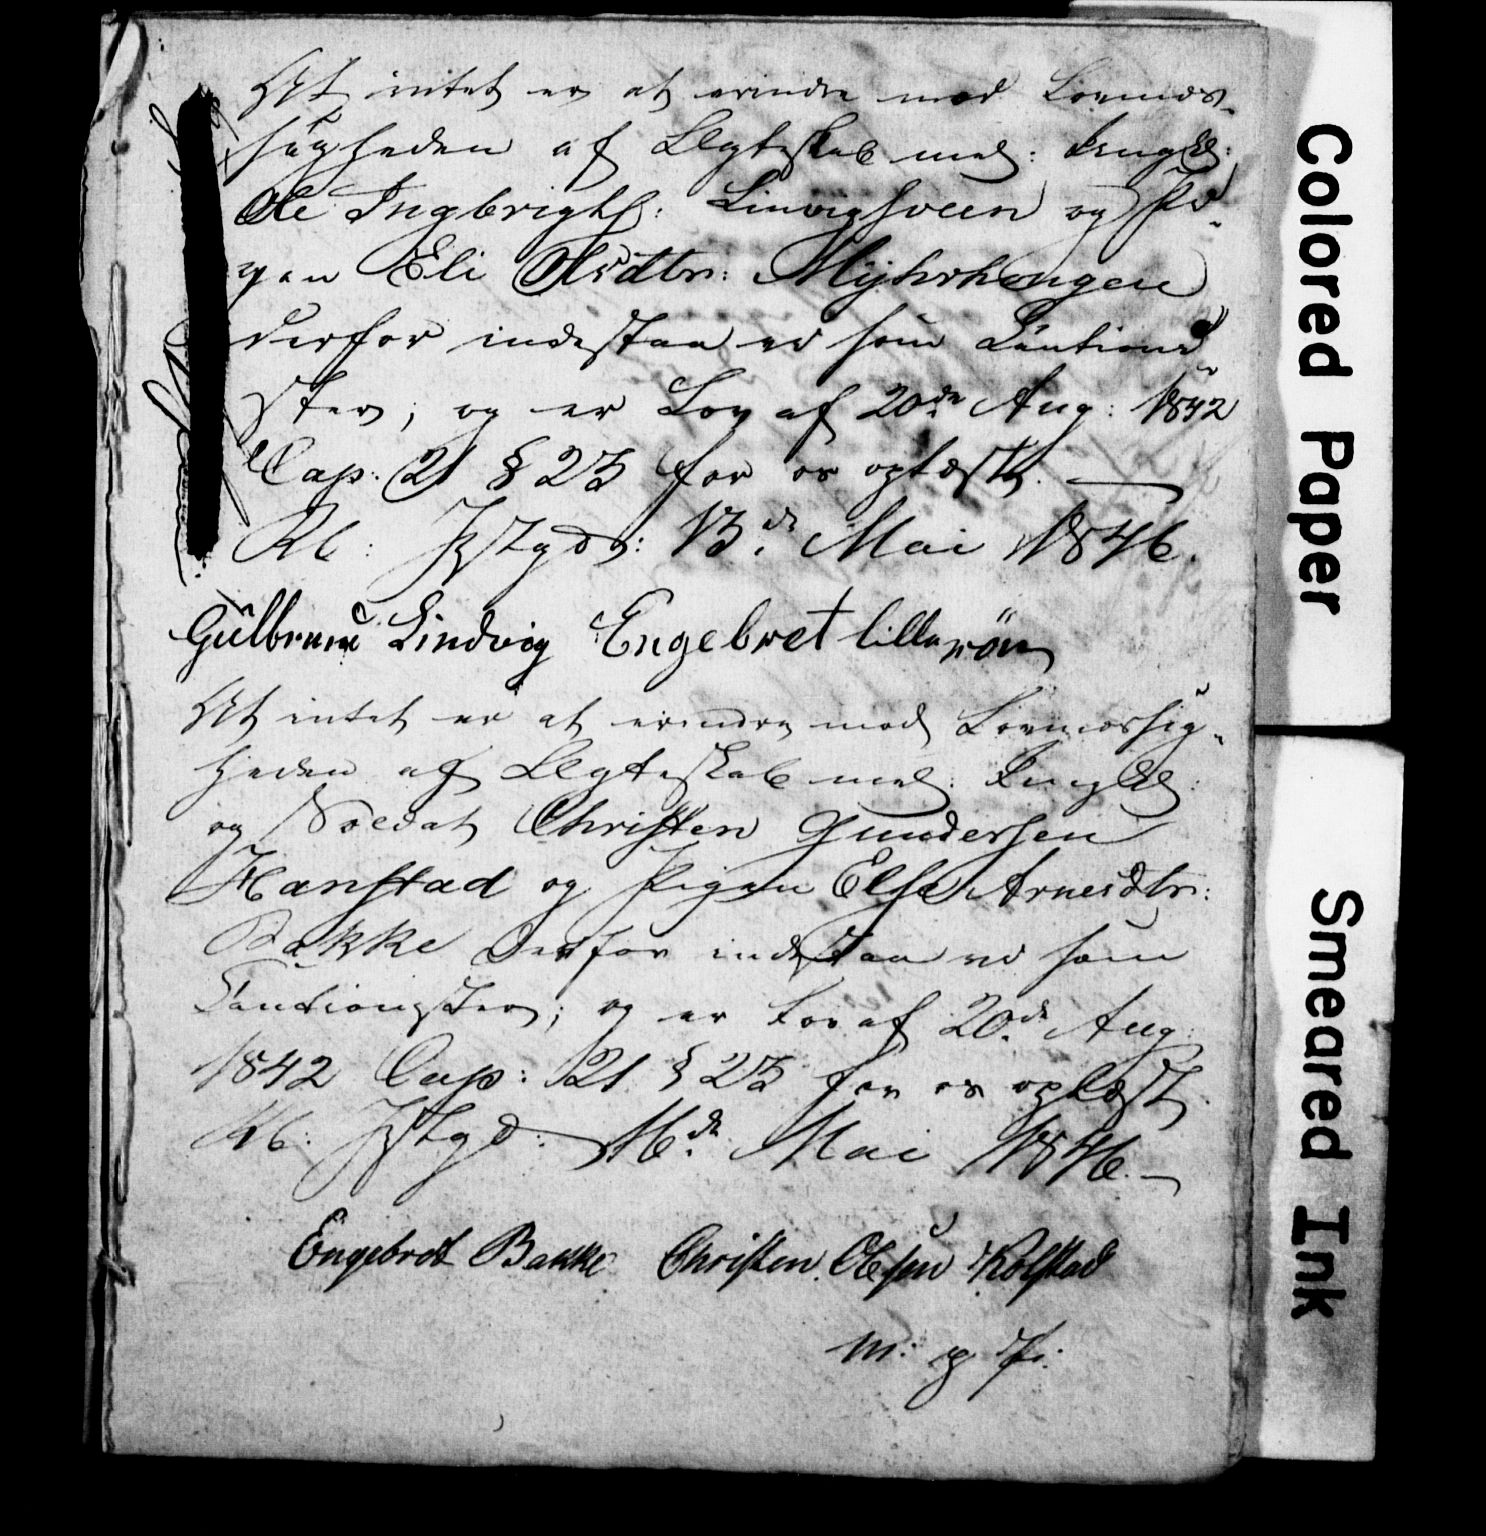 At intet er at erindre mod Lovmæs-
sigheden af Ægteskab mel: Ungk:
Ole Ingbrigts: Linvighveen og Pi-
gen Eli Olsdtr: Myhrhaugen
derfor indestaa vi som Cautioni-
ster; og er Lov af 20de Aug: 1842
Cap: 21 § 25 for os oplæst.
Kb: Ystgd: 13de Mai 1846.
Gulbrand Lindvig Engebret lillerön
At intet er at erindre mod Lovmæssig-
heden af Ægteskab mel: Ungk:
og Soldat Christen Gundersen
Hanstad og Pigen Else Arnesdtr:
Bakke derfor indestaa vi som
Cautionister; og er Lov af 20de Aug:
1842 Cap: 21 § 25 for os oplæst.
Kb: Ystgd: 16de Mai 1846.
Engebret Bakke Christen Olsen Kolstad
m: p: P:
Colored Paper
Smeared Ink